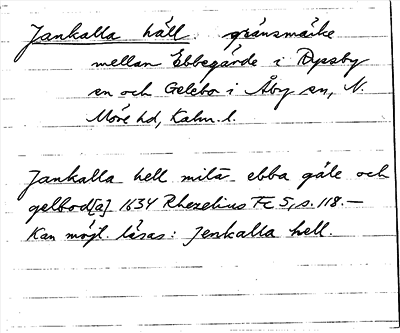 Jankalla häll gränsmärke
mellan Ebbegärde i Ryssby
sn och Gelebo i Åby sn, N.
Möre hd, Kalm. l.
Jankalla hell mita ebba gåle och
gelbod[a] 1634 Rhezelius Fc 5, s. 118. —
Kan möjl. läsas: Jenkalla hell.